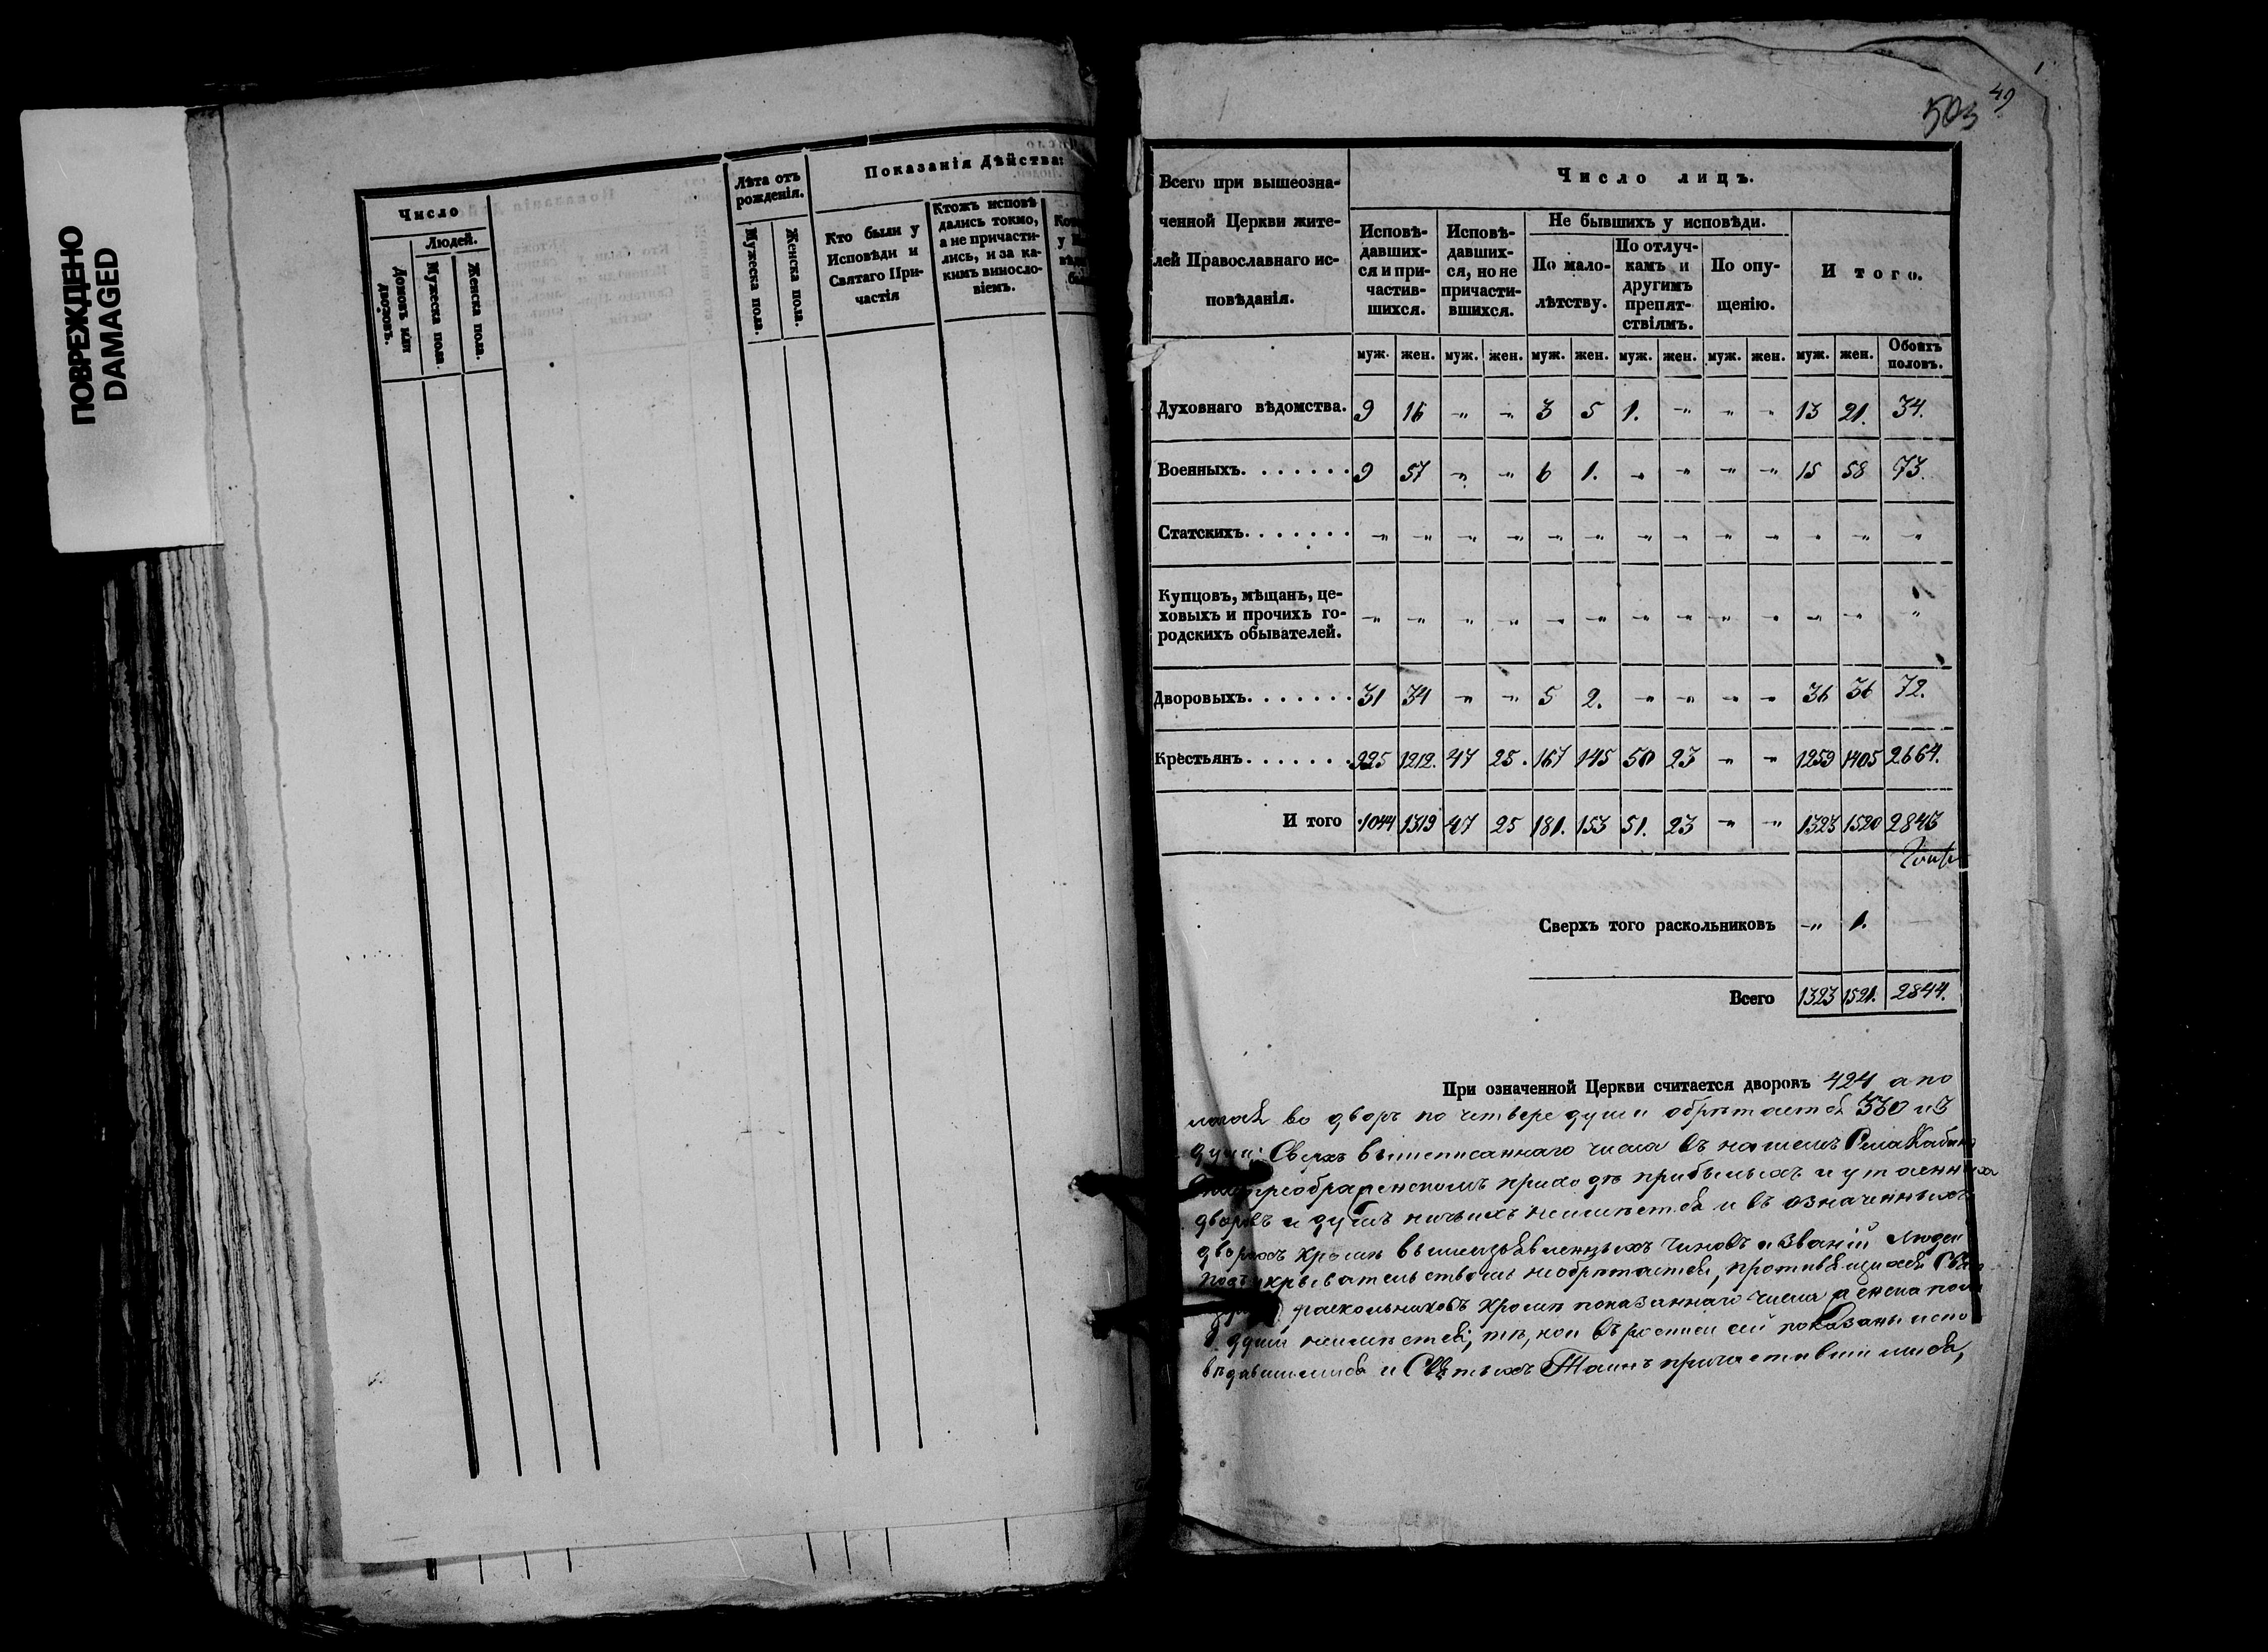 ПОВРЕЖДЕНО
DAMAGED
Число
Людей.
Домовъ или дворовъ.
Мужеска пола
Женска пола.
Лѣта отъ рожденія.
Мужеска пола.
Женска пола.
Показанія Дѣйства:
Кто были у
Исповѣди и
Святаго При-
частія
Ктожъ исповѣ
дались токмо,
а не причасти-
лись, и за ка-
кимъ винослo-
віемъ.
503 49
Всего при вышеозна-
ченной Церкви жите-
лей Православнаго ис-
повѣданія.
Число лицъ.
Исповѣ-
давших-
ся и при-
частив-
шихся.
Исповѣ-
давших-
ся, но не
причасти-
вшихся.
Не бывшихъ у исповѣди.
По мало-
лѣтству.
По отлуч-
камъ и
другимъ
препят-
ствіямъ.
По опу-
щенію.
И того.
муж. жен. муж. жен. муж. жен. муж. жен. муж. жен. муж. жен. Обоихъ половъ.
Духовнаго вѣдомства. 9 16 -„ -„ 3 5 1. -„ -„ -„ 13 21. 34.
Военныхъ. . . . . . . 9 57 -„ -„ 6 1. -„ -„ -„ -„ 15 58 73.
Статскихъ. . . . . . . -„ -„ -„ -„ -„ -„ -„ -„ -„ -„ -„ -„ -„
Купцовъ, мѣщанъ, це-
ховыхъ и прочихъ го-
родскихъ обывателей. -„ -„ -„ -„ -„ -„ -„ -„ -„ -„ -„ -„ „
Дворовыхъ. . . . . . . 31 34 -„ -„ 5 2. -„ -„ -„ -„ 36 36 72.
Крестьянъ. . . . . . . 995 1212. 47 25. 167 145 50 23 -„ -„ 1259 1405 2664.
И того 1044 1319 47 25 181. 153 51. 23 -„ -„ 1323 1520 2843
Сверхъ того раскольниковъ -„ 1.
Всего 1323 1521. 2844.
При означенной Церкви считается дворовъ 424 а по
лагая во дворъ по четыре души обрѣтается 330 и 3
души. Сверхъ вышеписаннаго числа въ нашемъ Села
преображенскомъ приходѣ прибылыхъ и утаенныхъ
дворовъ и душъ ничьихъ неимѣется и въ означенныхъ
дворахъ кромѣ вышеизъявленныхъ чиновъ и званій людей
подъ укрывательствомъ необрѣтается, противящихся
раскольниковъ кромѣ показаннаго числа женска пола
1. души неимѣется; тѣ, кои въ росписи сей показаны испо
вѣдавшимися и Святыхъ Таинъ причастившимися,